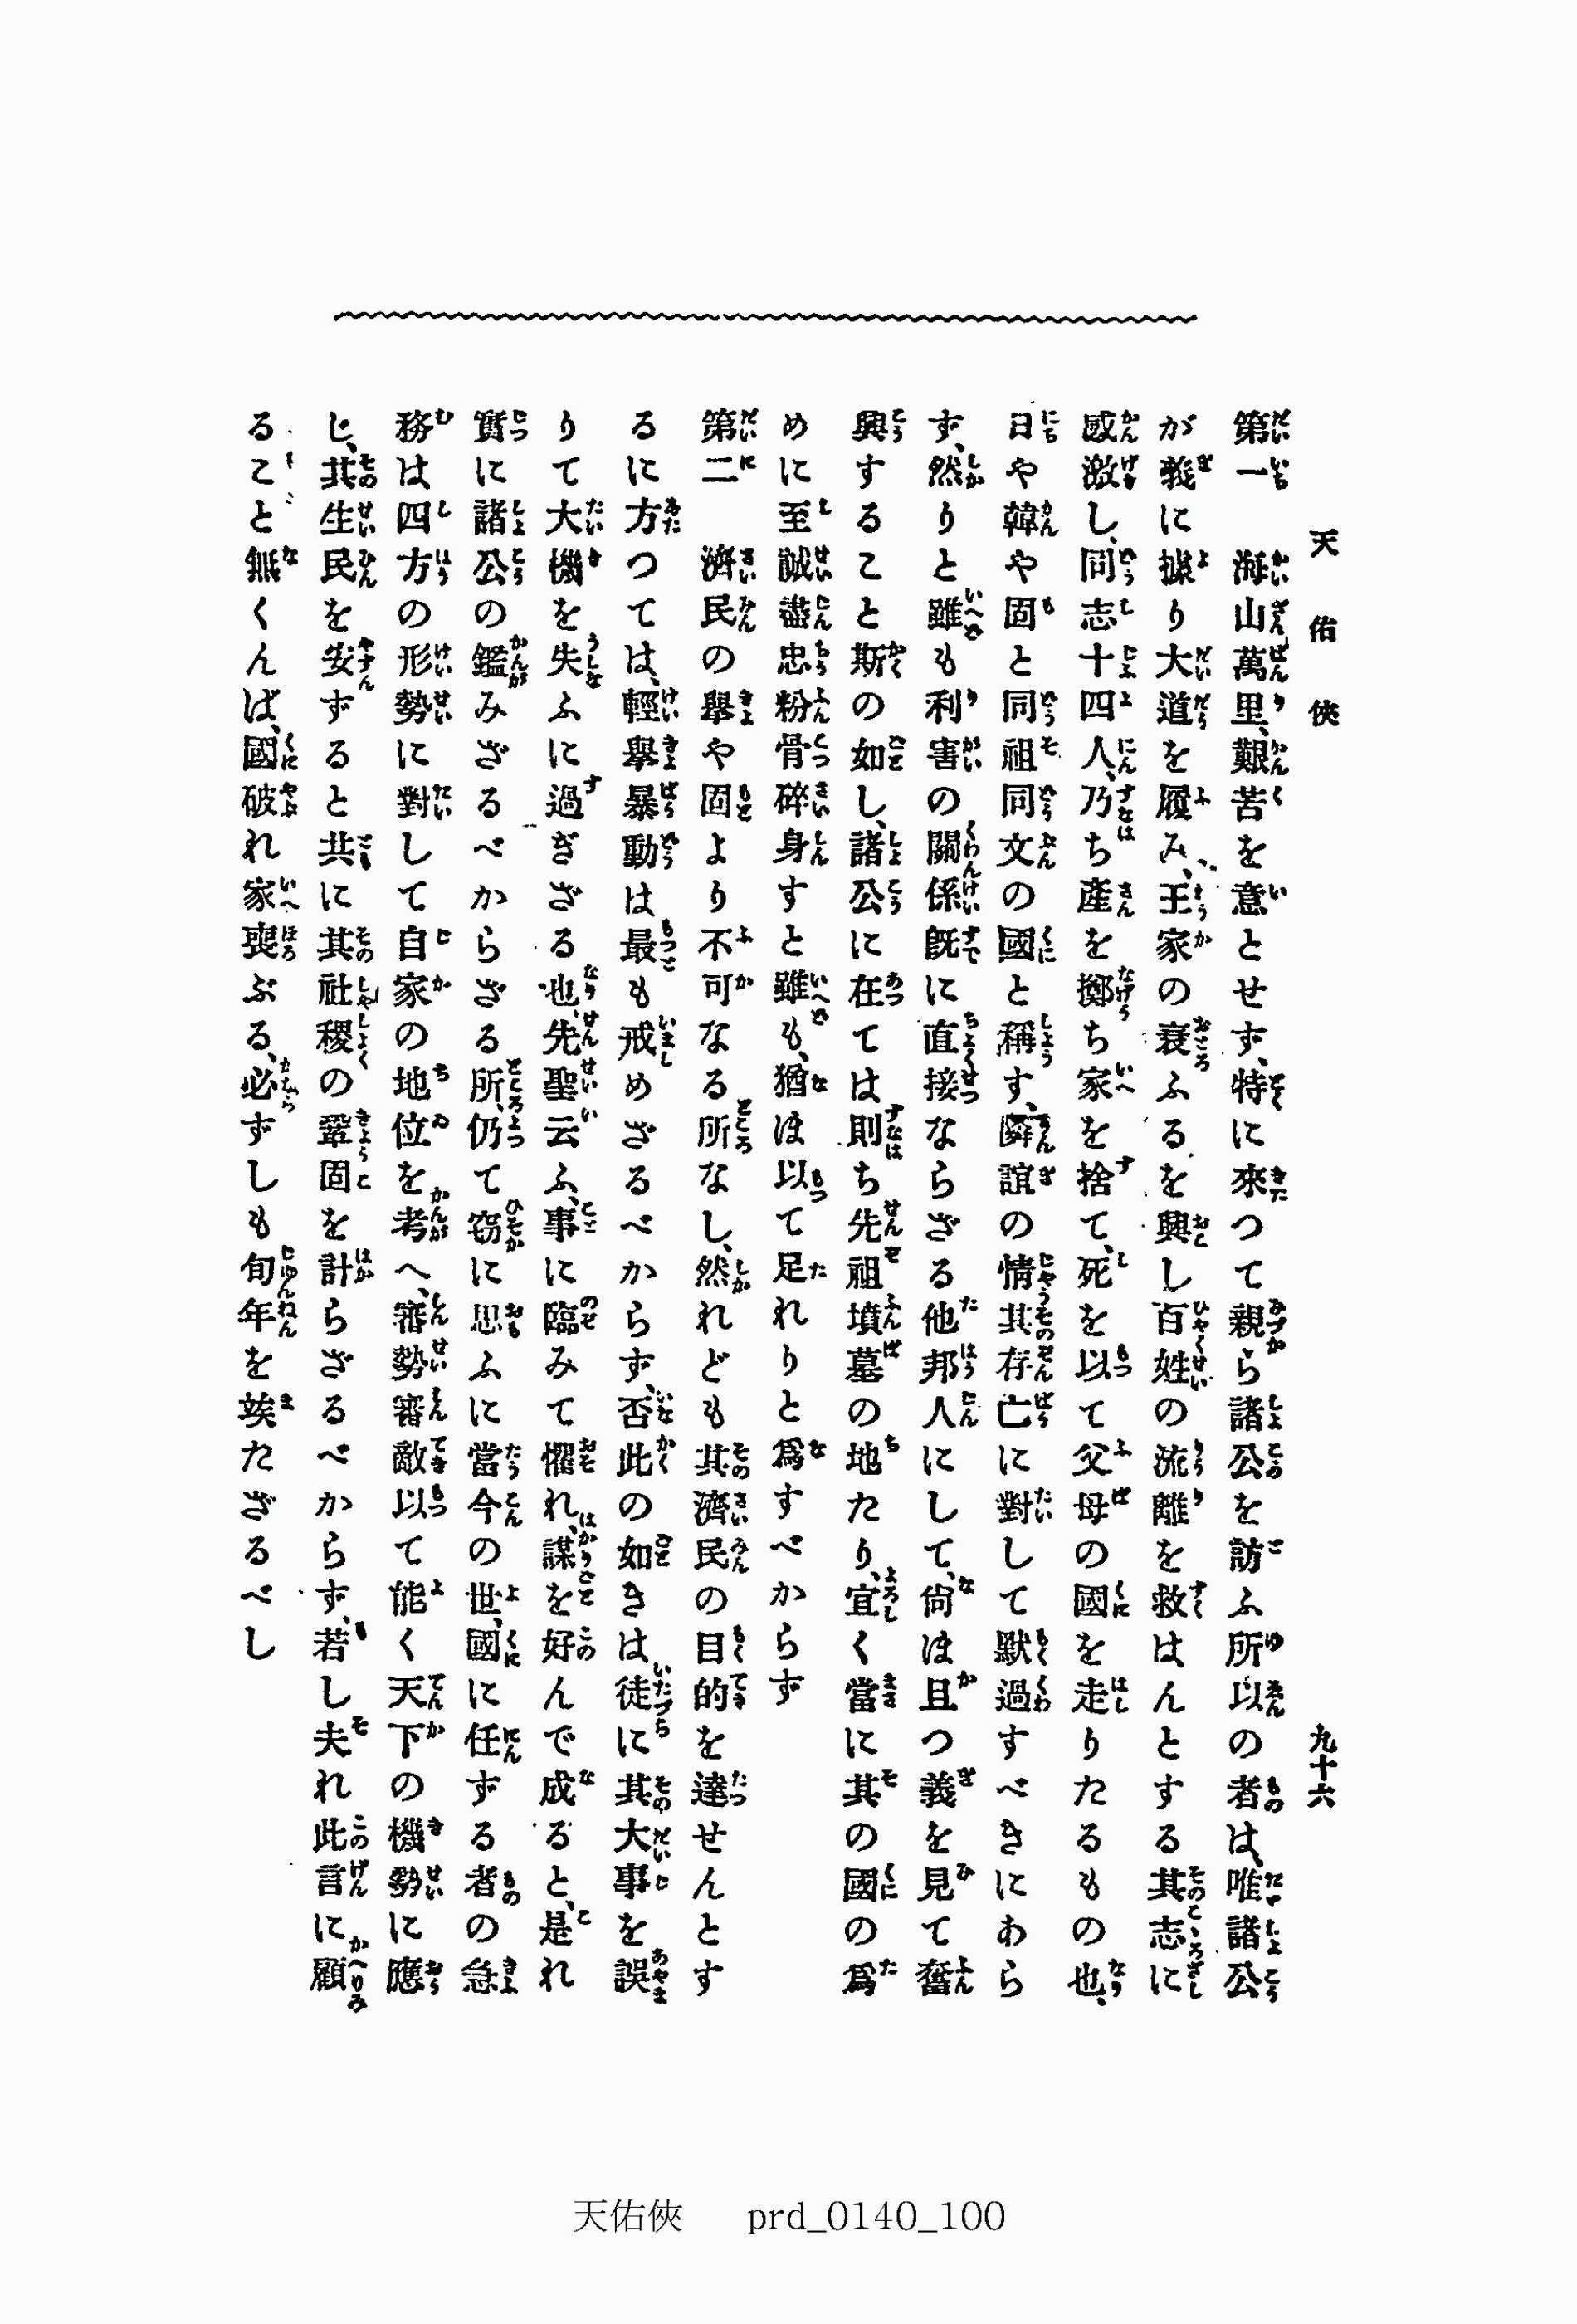 天佑俠
九十六
第一　海山萬里、艱苦を意とせず、特に來つて親ら諸公を訪ふ所以の者は、唯諸公
が義に據り大道を履み、王家の衰ふるを興し百姓の流離を救はんとする其志に
感激し、同志十四人、乃ち產を擲ち家を捨て、死を以て父母の國を走りたるもの也、
日や韓や固と同祖同文の國と稱す、隣誼の情其存亡に對して默過すべきにあら
ず、然りと雖も利害の關係既に直接ならざる他邦人にして、尙ほ且つ義を見て奮
興すること斯の如し、諸公に在ては則ち先祖墳墓の地たり、宜く當に其の國の爲
めに至誠盡忠粉骨碎身すと雖も、猶ほ以て足れりと爲すべからず
第二　濟民の擧や固より不可なる所なし、然れども其濟民の目的を達せんとす
るに方つては、輕擧暴動は最も戒めざるべからず、否此の如きは、徒に其大事を誤
りて大機を失ふに過ぎざる也、先聖云ふ、事に臨みて懼れ、謀を好んで成ると、是れ
實に諸公の鑑みざるべからざる所、仍て窃に思ふに當今の世、國に任ずる者の急
務は四方の形勢に對して自家の地位を考へ、審勢審敵以て能く天下の機勢に應
じ、其生民を安ずると共に其社稷の鞏固を計らざるべからず、若し夫れ此言に顧
ること無くんば、國破れ家喪ぶる、必ずしも旬年を竢たざるべし
天佑俠　prd_0140_100